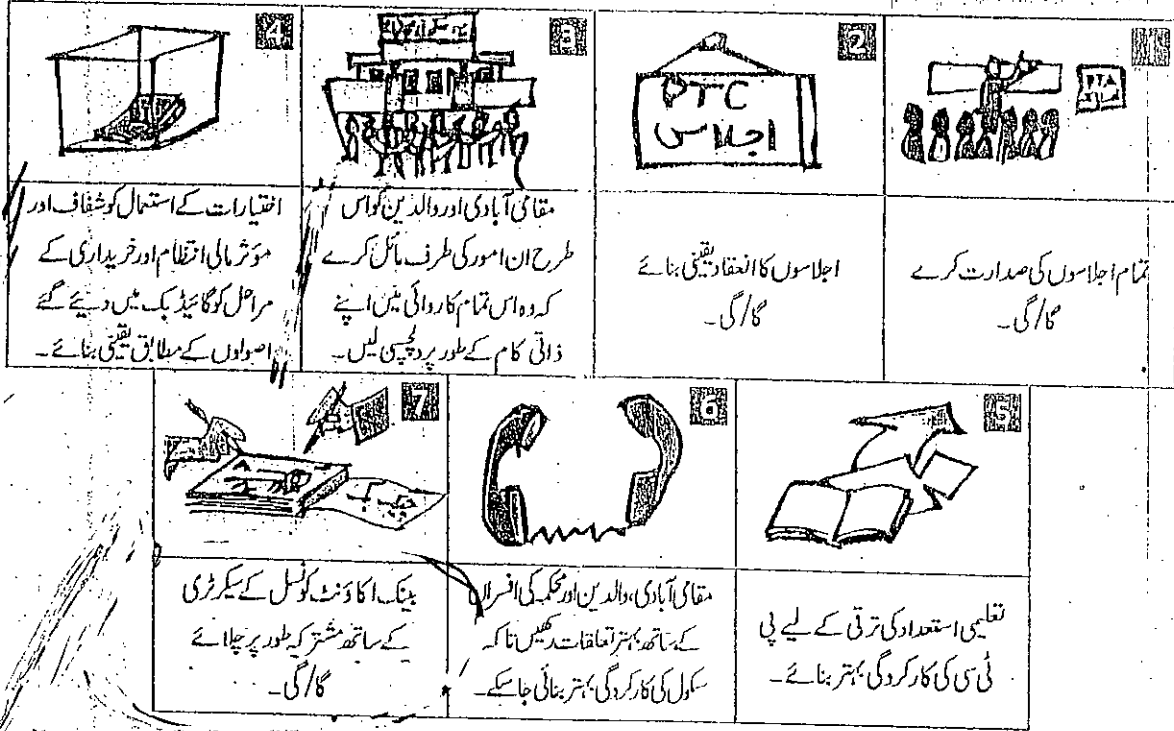 PTA
2
PTC
اجلاس
3
4
تمام اجلاسوں کی صدارت کرے
گا/گی۔
اجلاسوں کا انعقاد یقینی بنائے
گا/گی۔
مقامی آبادی اور والدین کو اس
طرح ان امور کی طرف مائل کرے
کہ وہ اس تمام کاروائی میں اپنے
ذاتی کام کے طور پر دلچسپی لیں۔
اختیارات کے استعمال کو شفاف اور
مؤثر مالی انتظام اور خریداری کے
مراحل کو گائیڈ بک میں دیئے گئے
اصولوں کے مطابق یقینی بنائے۔
5
6
7
چیک بک
تعلیمی استعداد کی ترقی کے لیے پی
ٹی سی کی کارکردگی بہتر بنائے۔
مقامی آبادی، والدین اور محکمہ کی افسران
کے ساتھ بہتر تعلقات رکھیں تاکہ
سکول کی کارکردگی بہتر بنائی جا سکے۔
بینک اکاؤنٹ کونسل کے سیکرٹری
کے ساتھ مشترکہ طور پر چلائے
گا/گی۔